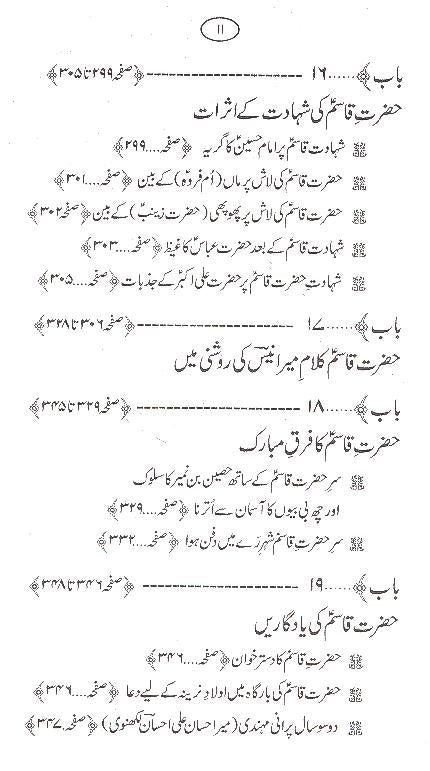 ۱۱
باب ﴾......۱۶ ------------------------ ﴿صفحہ ۲۹۹ تا ۳۰۵﴾
حضرتِ قاسمؑ کی شہادت کے اثرات
شہادتِ قاسمؑ پر امام حسینؑ کا گریہ ﴿صفحہ....۲۹۹﴾
حضرت قاسمؑ کی لاش پر ماں (اُم فروہؑ) کے بین ﴿صفحہ....۳۰۱﴾
حضرت قاسمؑ کی لاش پر پھوپھی (حضرت زینبؑ) کے بین ﴿صفحہ ۳۰۲﴾
شہادتِ قاسمؑ کے بعد حضرت عباسؑ کا غیظ ﴿صفحہ....۳۰۳﴾
شہادتِ حضرت قاسمؑ پر حضرت علی اکبرؑ کے جذبات ﴿صفحہ....۳۰۵﴾
باب ﴾......۱۷ ------------------------ ﴿صفحہ ۳۰۶ تا ۳۲۸﴾
حضرت قاسمؑ کلامِ میر انیسؔ کی روشنی میں
باب ﴾......۱۸ ------------------------ ﴿صفحہ ۳۲۹ تا ۳۴۵﴾
حضرتِ قاسمؑ کا فرقِ مبارک
سرِ حضرت قاسمؑ کے ساتھ حصین بن نمیر کا سلوک
اور چھ بی بیوں کا آسمان سے اُترنا ﴿صفحہ....۳۲۹﴾
سرِ حضرت قاسمؑ شہرِ رَے میں دفن ہوا ﴿صفحہ....۳۳۲﴾
باب ﴾......۱۹ ------------------------ ﴿صفحہ ۳۴۶ تا ۳۴۸﴾
حضرت قاسمؑ کی یادگاریں
حضرتِ قاسمؑ کا دستر خوان ﴿صفحہ....۳۴۶﴾
حضرت قاسمؑ کی بارگاہ میں اولادِ نرینہ کے لیے دعا ﴿صفحہ....۳۴۶﴾
دو سو سال پرانی مہندی (میر احسان علی احسانؔ لکھنوی) ﴿صفحہ.۳۴۷﴾